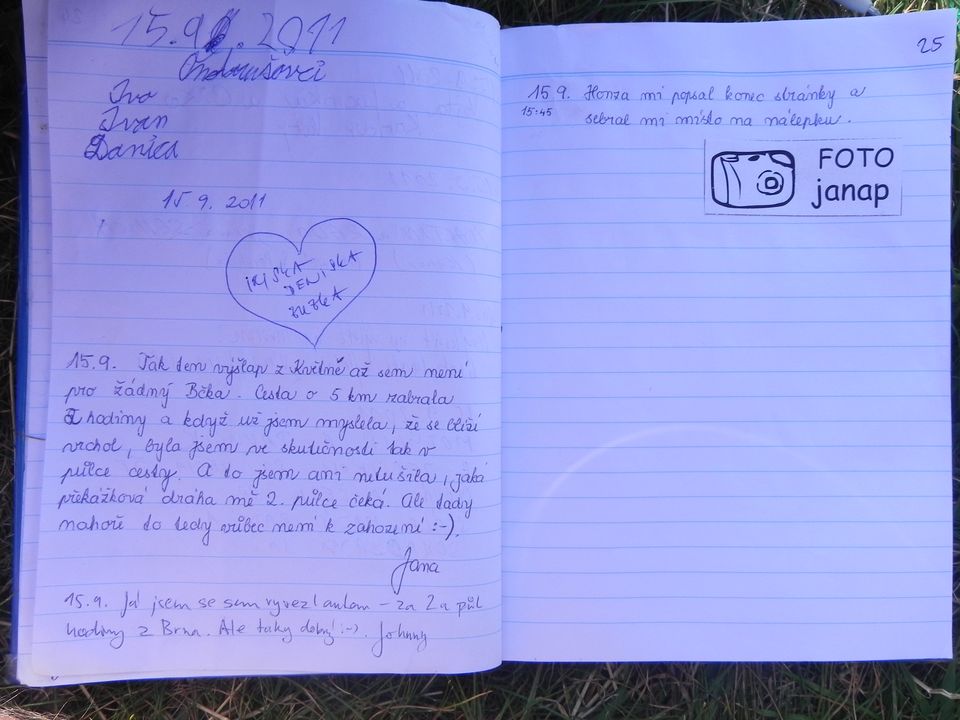 15.9. 2011
Ondrušovci
Ivo
Ivan
Danica
15.9. 2011
IRISKA
DENISKA
ZUZKA
15.9. Tak ten výšlap z Květné až sem není
pro žádný Bčka. Cesta o 5 km zabrala
2 hodiny a když už jsem myslela, že se blíží
vrchol, byla jsem ve skutečnosti tak v
půlce cesty. A to jsem ani netušila, jaká
překážková dráha mě 2. půlce čeká. Ale tady
nahoře to tedy vůbec není k zahození :-).
Jana
15.9. Já jsem se sem vyvezl autem – za 2 a půl
hodiny z Brna. Ale taky dobrý! :-). Johnny
25
15.9. Honza mi popsal konec stránky a
15:45 sebral mi místo na nálepku.
FOTO
janap